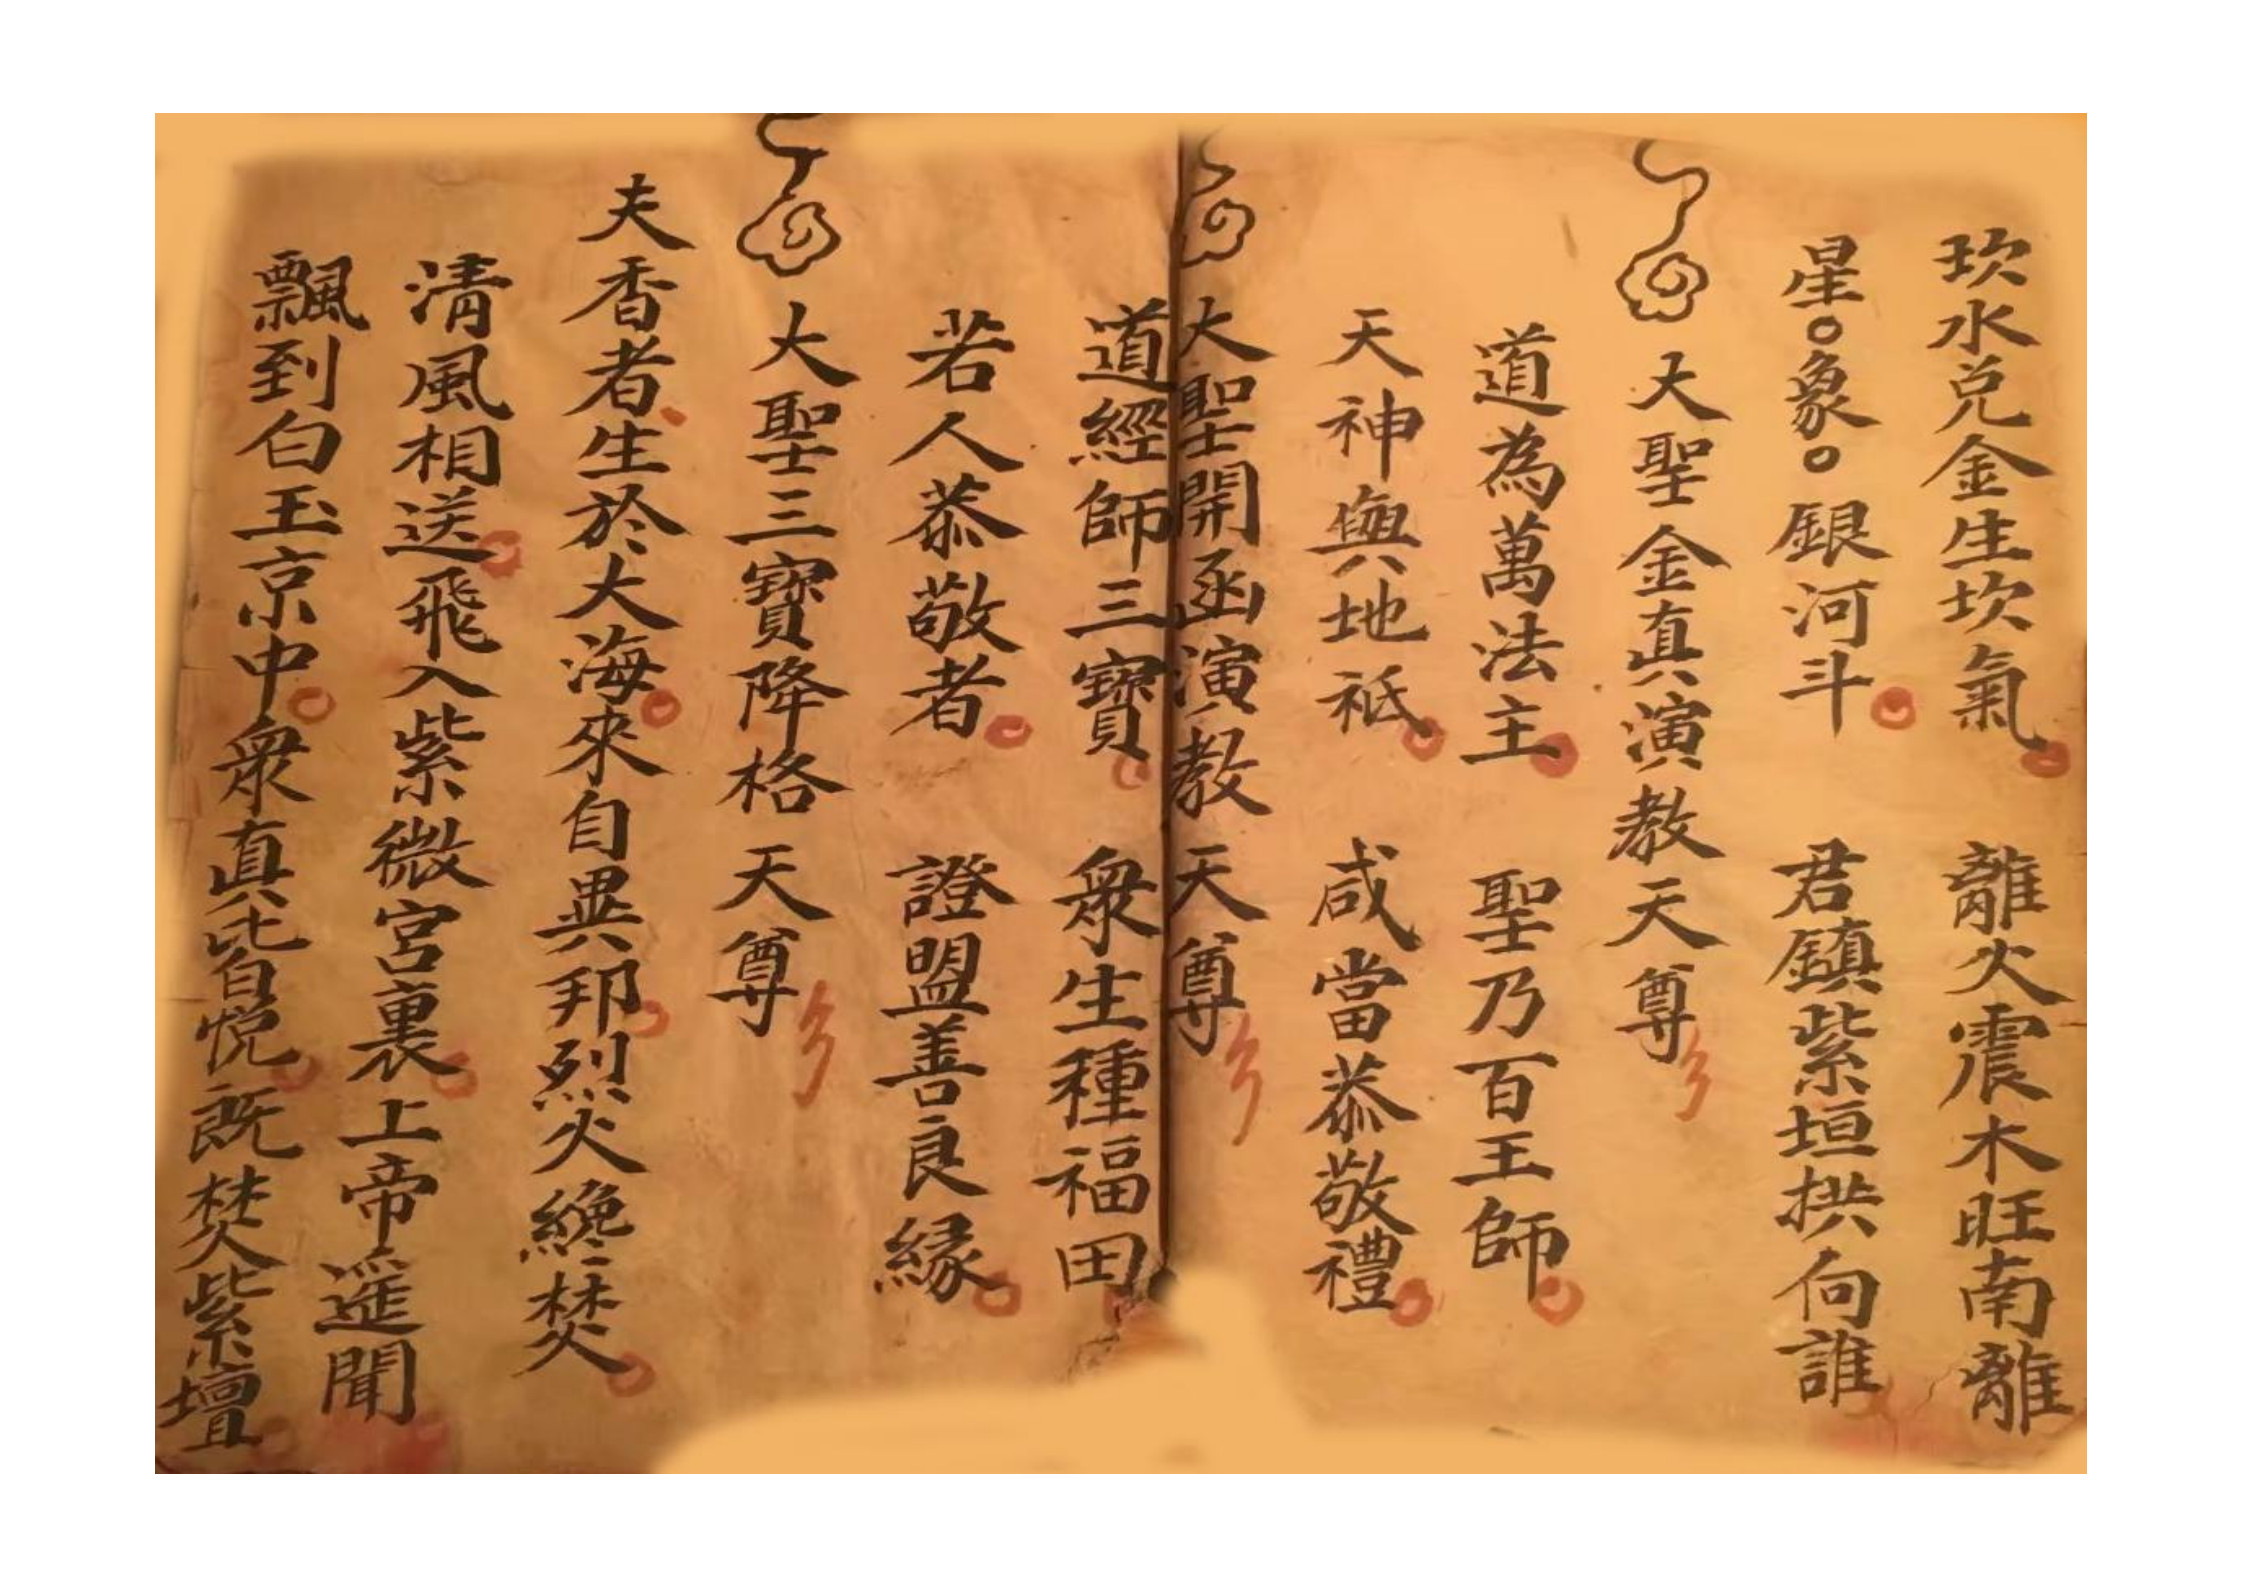 坎水兌金生坎氣　離火震木旺南離
星。象。銀河斗　君鎮紫垣拱向誰
大聖金真演教天尊
道為萬法主　聖乃百王師
天神與地祇　咸當恭敬禮
大聖開函演教天尊
道經師三寶　眾生種福田
若人恭敬者　證盟善良緣
大聖三寶降格天尊
夫香者生於大海來自異邦烈火纔焚
清風相送飛入紫微宮裏上帝遥聞
飄到白玉京中眾真皆悅既焚紫壇